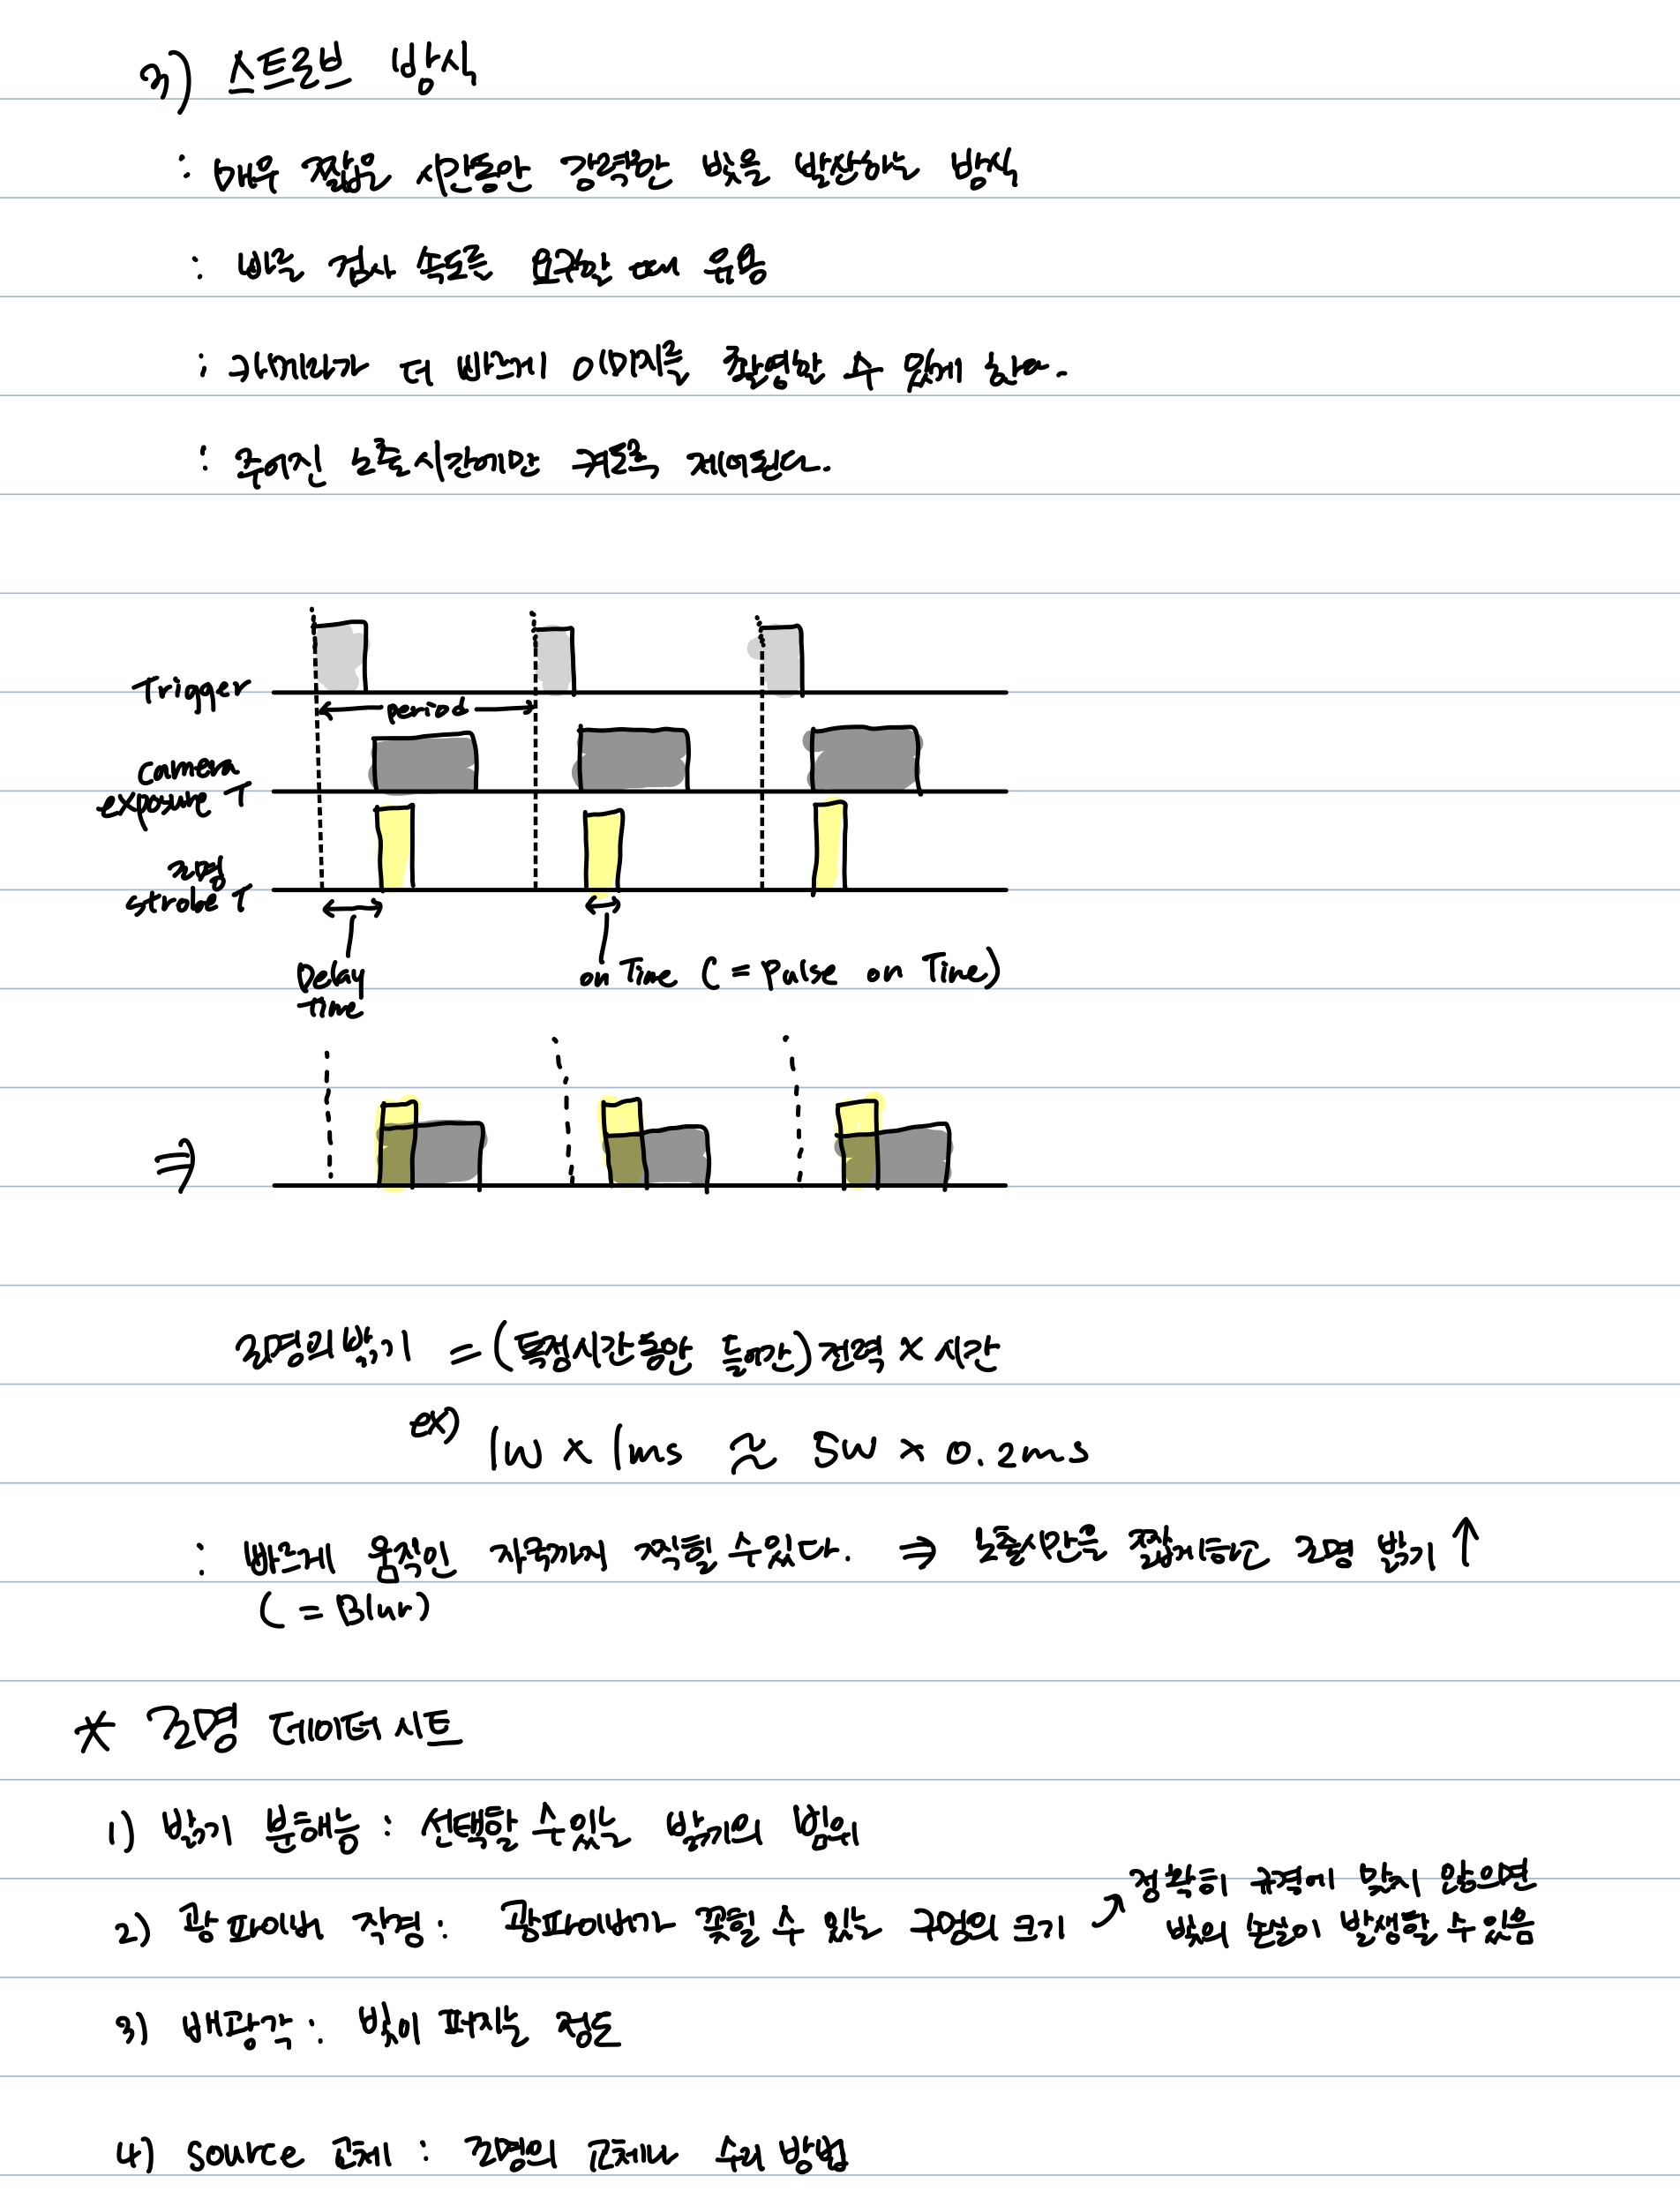 3) 스트로브 방식
: 매우 짧은 시간동안 강력한 빛을 발산하는 방식
: 빠른 검사 속도를 요구할 때 유용
: 카메라가 더 빠르게 이미지를 촬영할 수 있게 한다.
: 주어진 노출시간에만 켜도록 제어된다.
Trigger
period
camera
exposure T
조명
strobe T
Delay
Time
on Time (= Pulse on Time)
⇒
조명의 밝기 = (특정시간동안 들어간) 전력 × 시간
ex) 1W × 1ms ≈ 5W × 0.2ms
: 빠르게 움직인 자국까지 찍힐 수 있다. ⇒ 노출시간을 짧게하면 조명 밝기 ↑
(= Blur)
* 조명 데이터 시트
1) 밝기 분해능 : 선택할 수 있는 밝기의 범위
2) 광 파이버 직경 : 광파이버가 꽂힐 수 있는 구멍의 크기
정확히 규격에 맞지 않으면
빛의 손실이 발생할 수 있음
3) 배광각 : 빛이 퍼지는 정도
4) source 교체 : 조명의 교체나 수리 방법